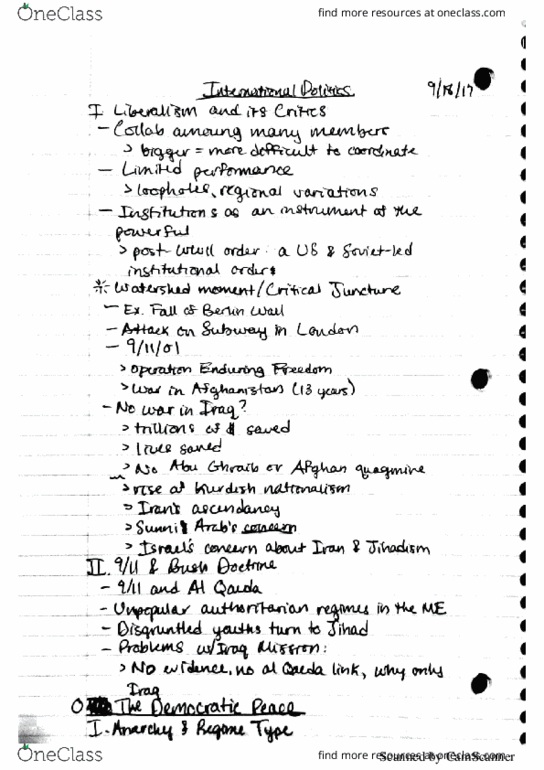 OneClass
find more resources at oneclass.com
International Politics
9/18/17
I Liberalism and its Critics
- Collab among many members
> bigger = more difficult to coordinate
- Limited performance
> loopholes, regional variations
- Institutions as an instrument of the
powerful
> post-WWII order: a US & Soviet-led
institutional orders
* Watershed moment/Critical Juncture
- Ex. Fall of Berlin Wall
- Attack on Subway in London
- 9/11/01
> Operation Enduring Freedom
> War in Afghanistan (13 years)
- No war in Iraq?
> trillions of $ saved
> lives saved
> No Abu Ghraib or Afghan quagmire
> rise of Kurdish nationalism
> Iran's ascendancy
> Sunni Arab's concern
> Israel's concern about Iran & Jihadism
II. 9/11 & Bush Doctrine
- 9/11 and Al Qaeda
- Unpopular authoritarian regimes in the ME
- Disgruntled youths turn to Jihad
- Problems w/Iraq Mission:
> No evidence, no al Qaeda link, why only
Iraq
The Democratic Peace
I. Anarchy & Regime Type
OneClass
find more resources at oneclass.com
Scanned by CamScanner